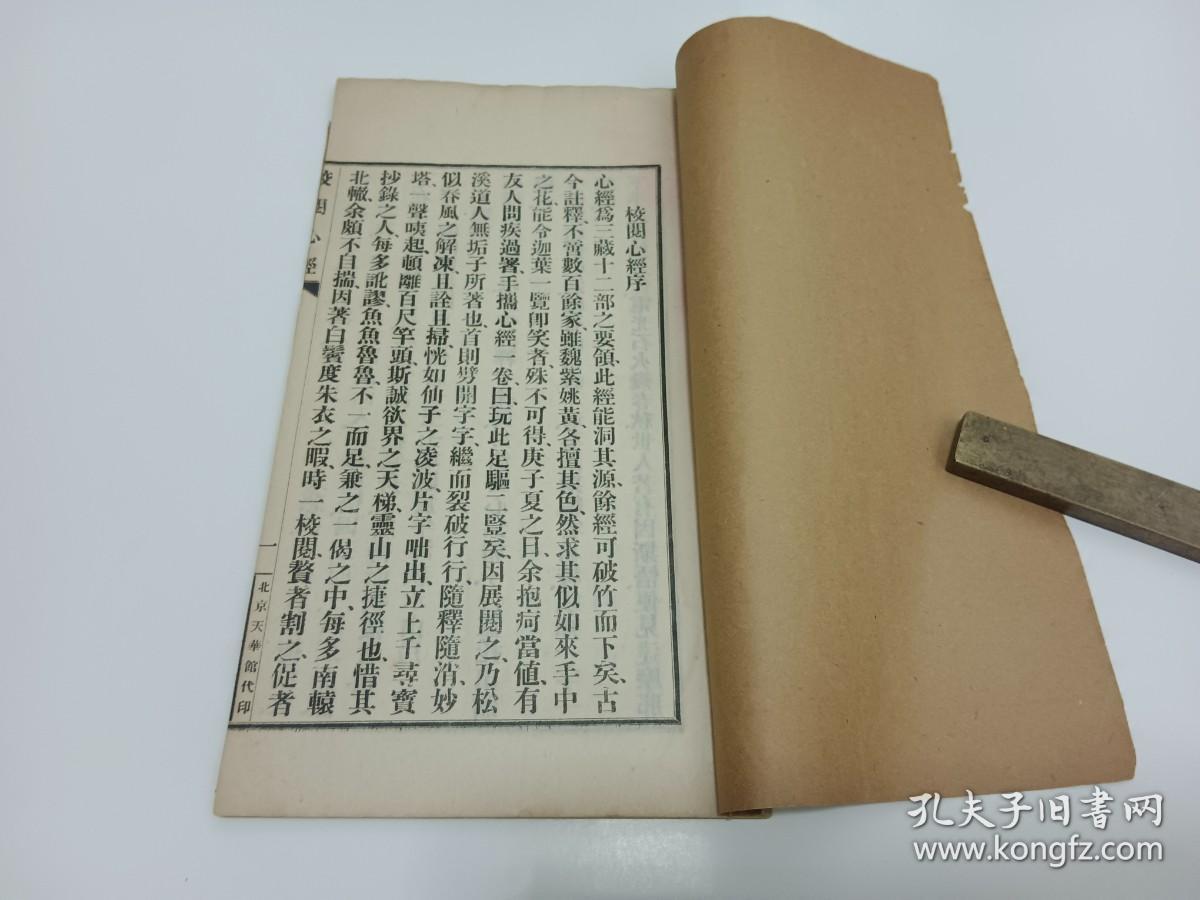 校閱心經序
心經爲三藏十二部之要領、此經能洞其源、餘經可破竹而下矣、古
今註釋、不啻數百餘家、雖魏紫姚黃、各擅其色、然求其似如來手中
之花、能令迦葉一覽卽笑者、殊不可得、庚子夏之日、余抱疴當値、有
友人問疾過署、手攜心經一卷曰、玩此足驅二豎矣、因展閱之、乃松
溪道人無垢子所著也、首則劈開字字、繼而裂破行行、隨釋隨消、妙
似春風之解凍、且詮且掃、恍如仙子之凌波、片字咄出、立上千尋寶
塔、一聲咦起、頓離百尺竿頭、斯誠欲界之天梯、靈山之捷徑也、惜其
抄錄之人、每多訛謬、魚魚魯魯、不一而足、兼之一偈之中、每多南轅
北轍、余頗不自揣、因著白饗度朱衣之暇、時一校閱、贅者割之、促者
校閱心經
一
北京天華館代印
孔夫子旧书网
www.kongfz.com